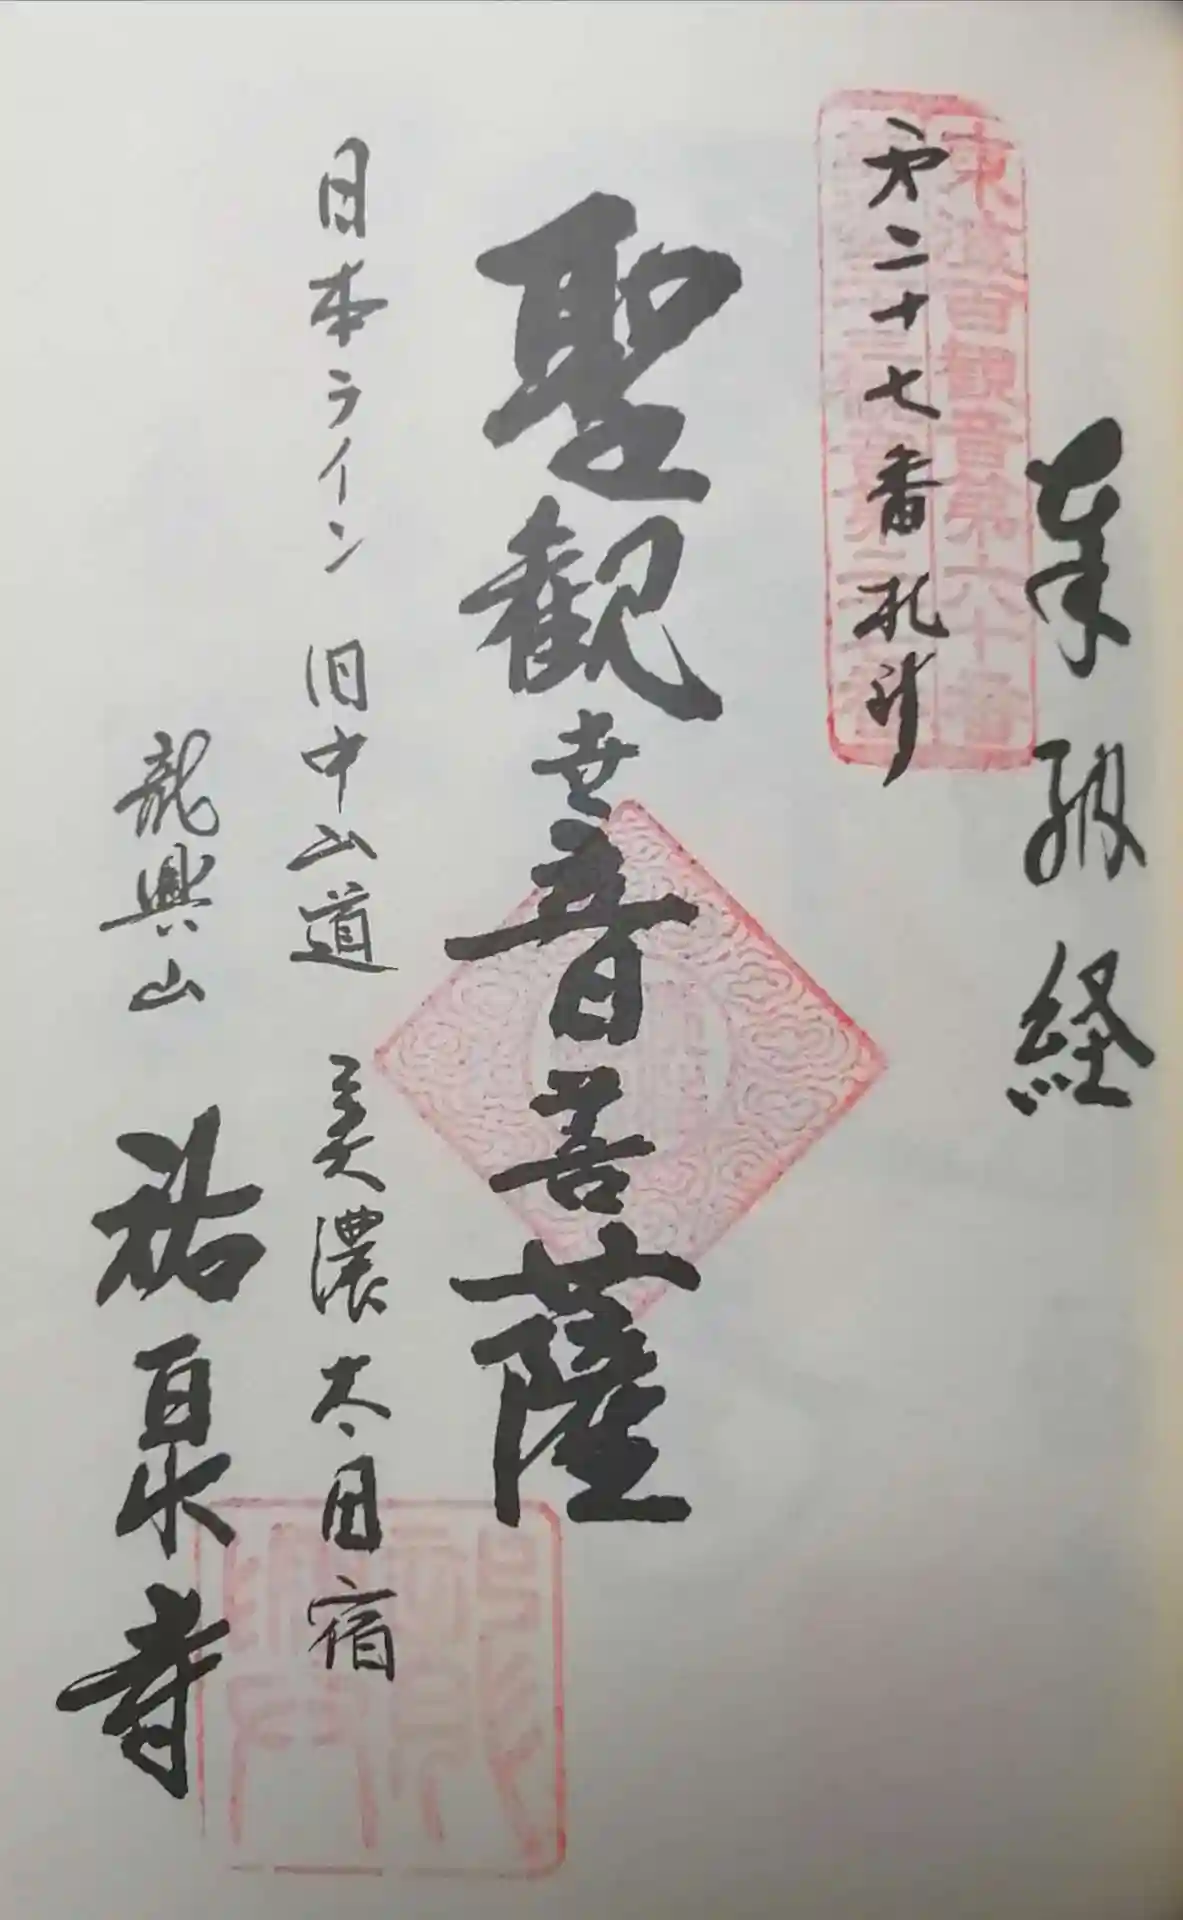 奉納経
東海百観音第六十番
第二十七番札所
聖観世音菩薩
日本ライン 旧中山道 美濃太田宿
龍興山 祐泉寺